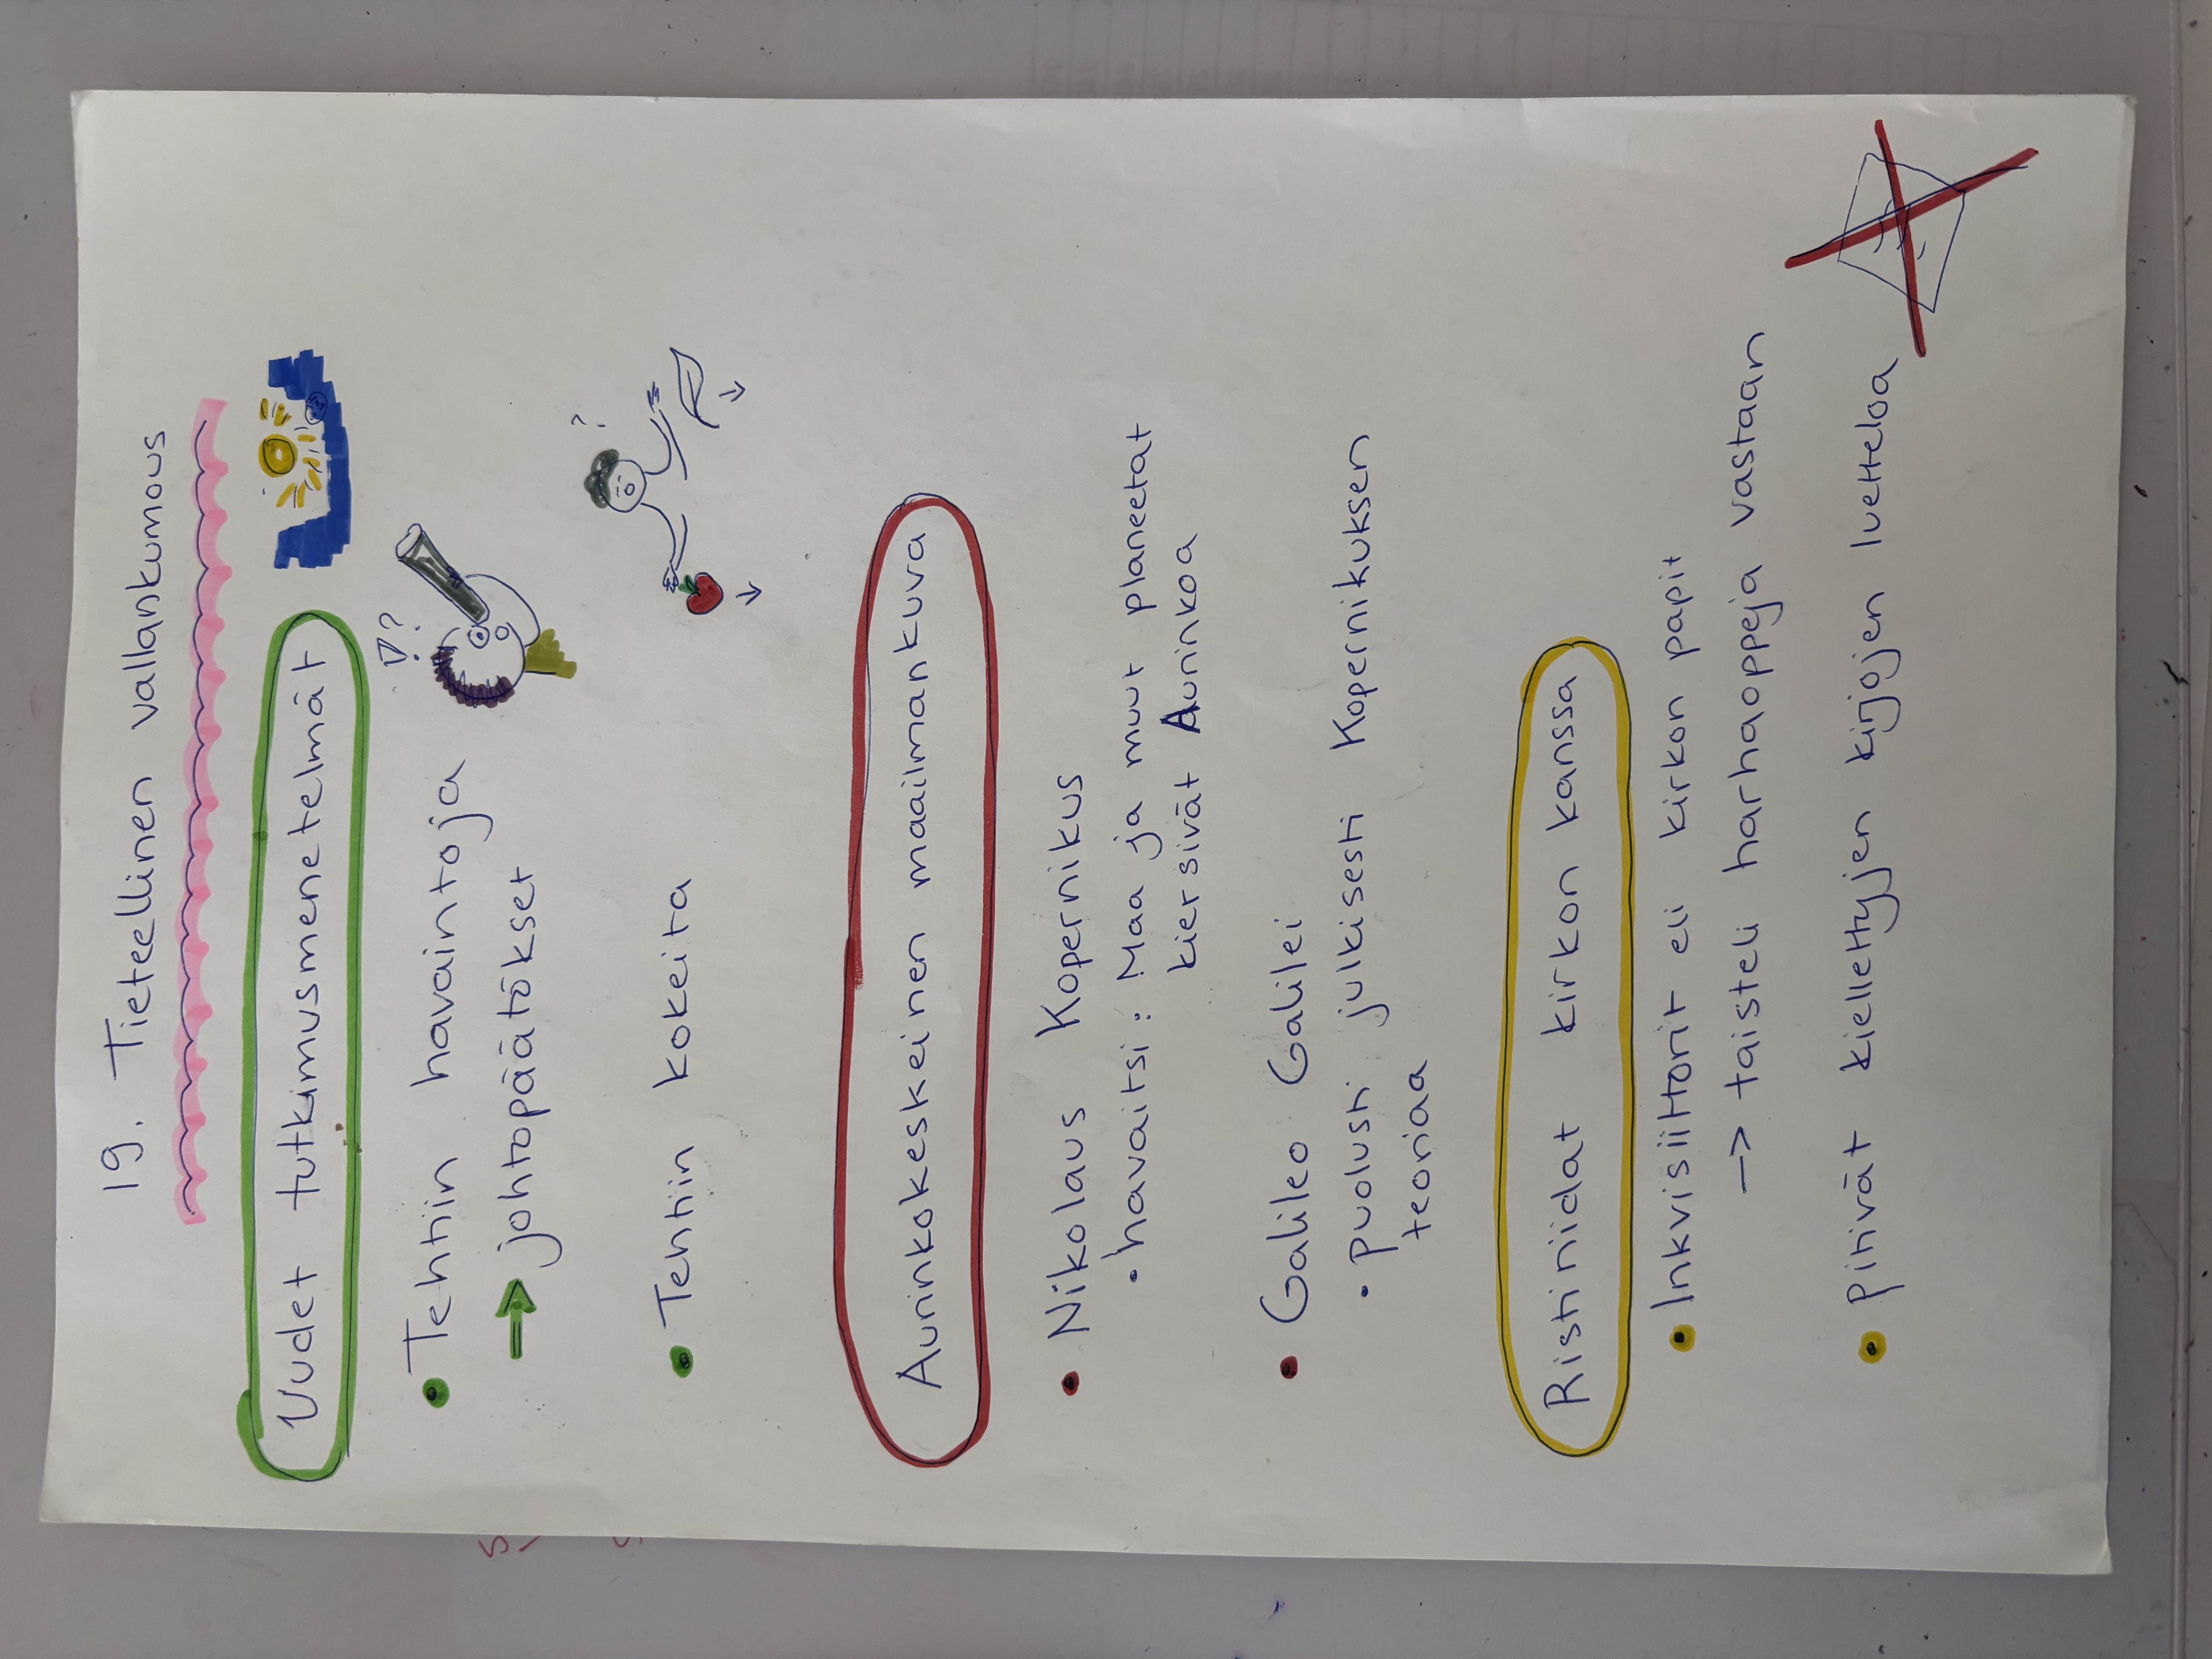 19. Tieteellinen vallankumous
Uudet tutkimusmenetelmät
• Tehtiin havaintoja
→ johtopäätökset
!? ?
• Tehtiin kokeita
?
Aurinkokeskeinen maailmankuva
• Nikolaus Kopernikus
• havaitsi: Maa ja muut planeetat
kiersivät Aurinkoa
• Galileo Galilei
• puolusti julkisesti Kopernikuksen
teoriaa
Ristiriidat kirkon kanssa
• Inkvisiittorit eli kirkon papit
→ taisteli harhaoppeja vastaan
• pitivät kiellettyjen kirjojen luetteloa